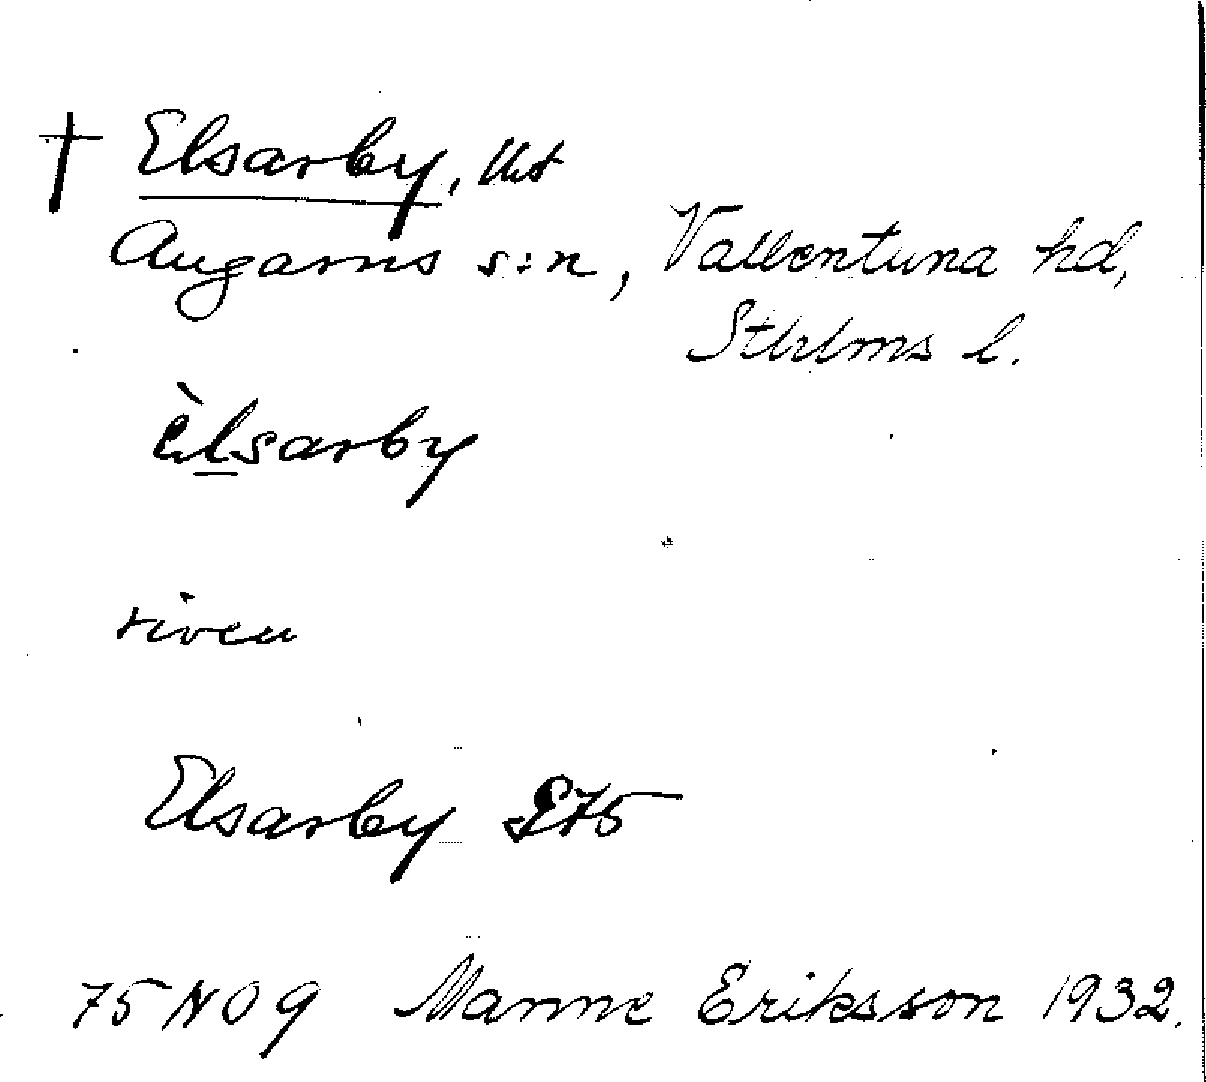 † Elsarby, Ut
Angarns s:n, Vallentuna hd,
Sthlms l.
èlsarby
riven
Elsarby J75
75 NO 9 Manne Eriksson 1932.